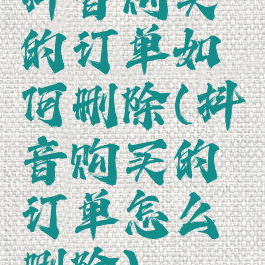 抖音购买
的订单如
何删除(抖
音购买的
订单怎么
删除)